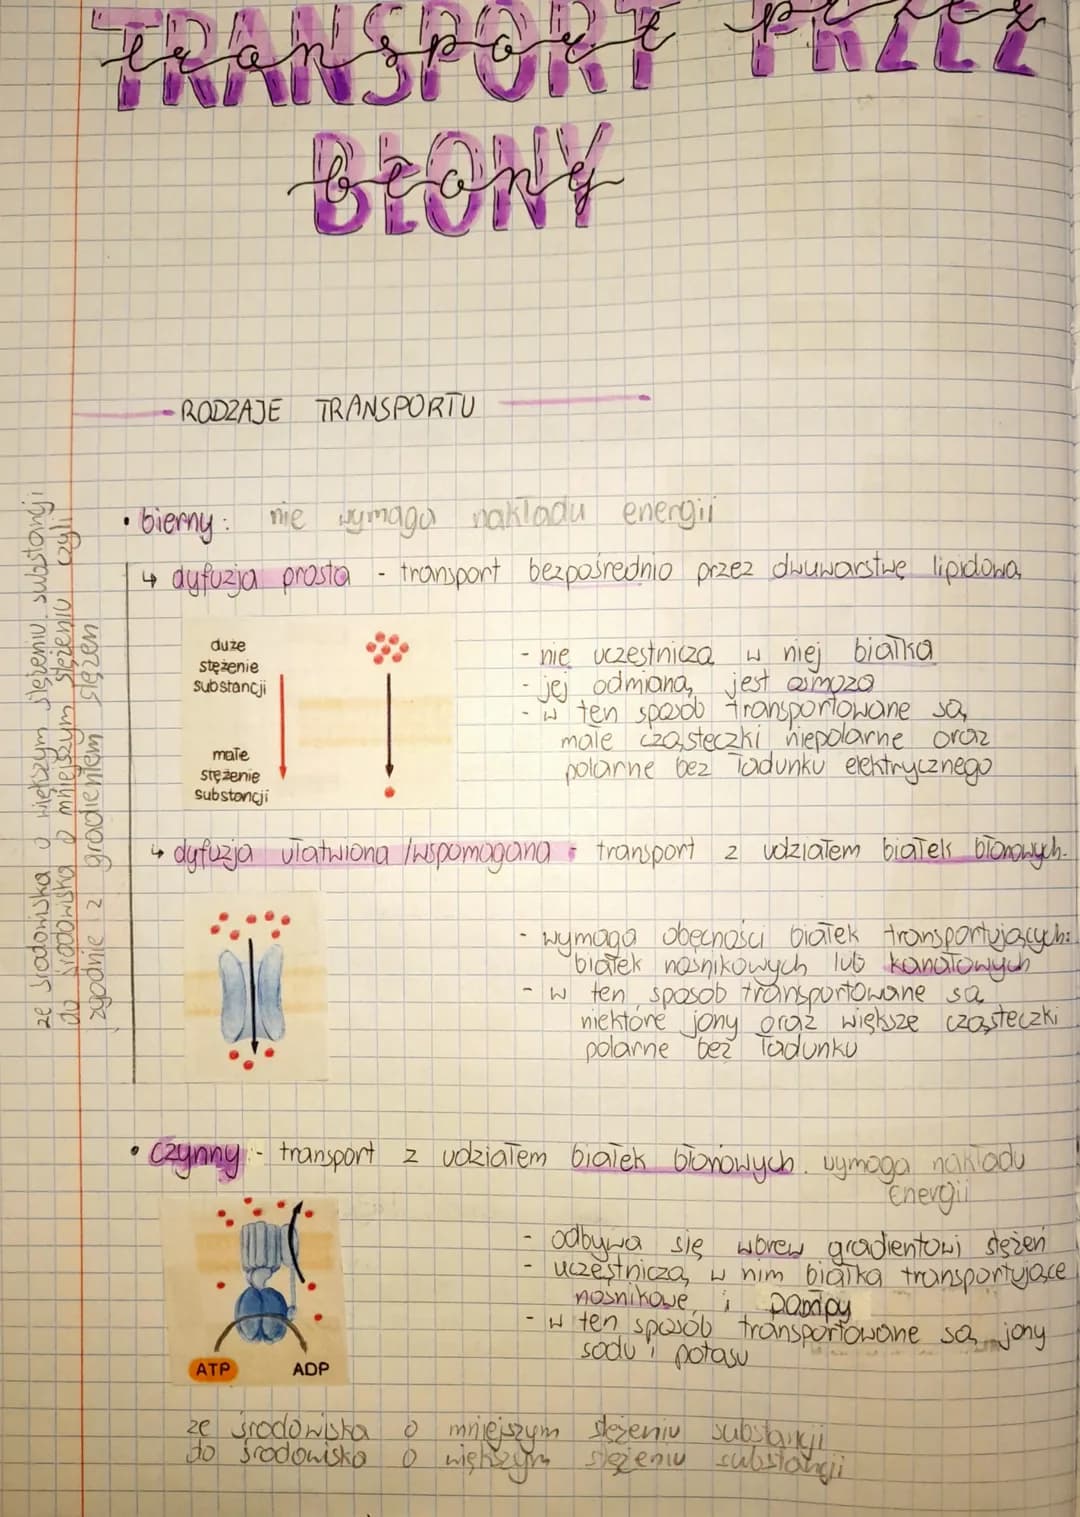 TRANSPORT PRZEZ
transport przez
BŁONY
błony
RODZAJE TRANSPORTU
• bierny: nie wymaga nakładu energii
↳ dyfuzja prosta - transport bezpośrednio przez dwuwarstwę lipidową
duże
stężenie
substancji
małe
stężenie
substancji
- nie uczestniczą w niej białka
- jej odmianą jest osmoza
- w ten sposób transportowane są
małe cząsteczki niepolarne oraz
polarne bez ładunku elektrycznego
↳ dyfuzja ułatwiona /wspomagana - transport z udziałem białek błonowych.
- wymaga obecności białek transportujących:
białek nośnikowych lub kanałowych
- w ten sposób transportowane są
niektóre jony oraz większe cząsteczki
polarne bez ładunku
ze środowiska o większym stężeniu substancji
do środowiska o mniejszym stężeniu czyli
zgodnie z gradientem stężeń
• czynny - transport z udziałem białek błonowych. wymaga nakładu
energii
ATP
ADP
- odbywa się wbrew gradientowi stężeń
- uczestniczą w nim białka transportujące
nośnikowe i pompy
- w ten sposób transportowane są jony
sodu i potasu
ze środowiska o mniejszym stężeniu substancji
do środowiska o większym stężeniu substancji